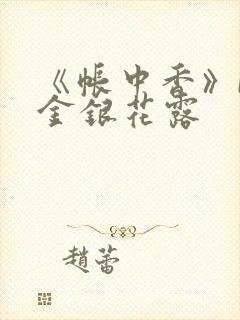 《帐中香》
金银花露
趙蕾